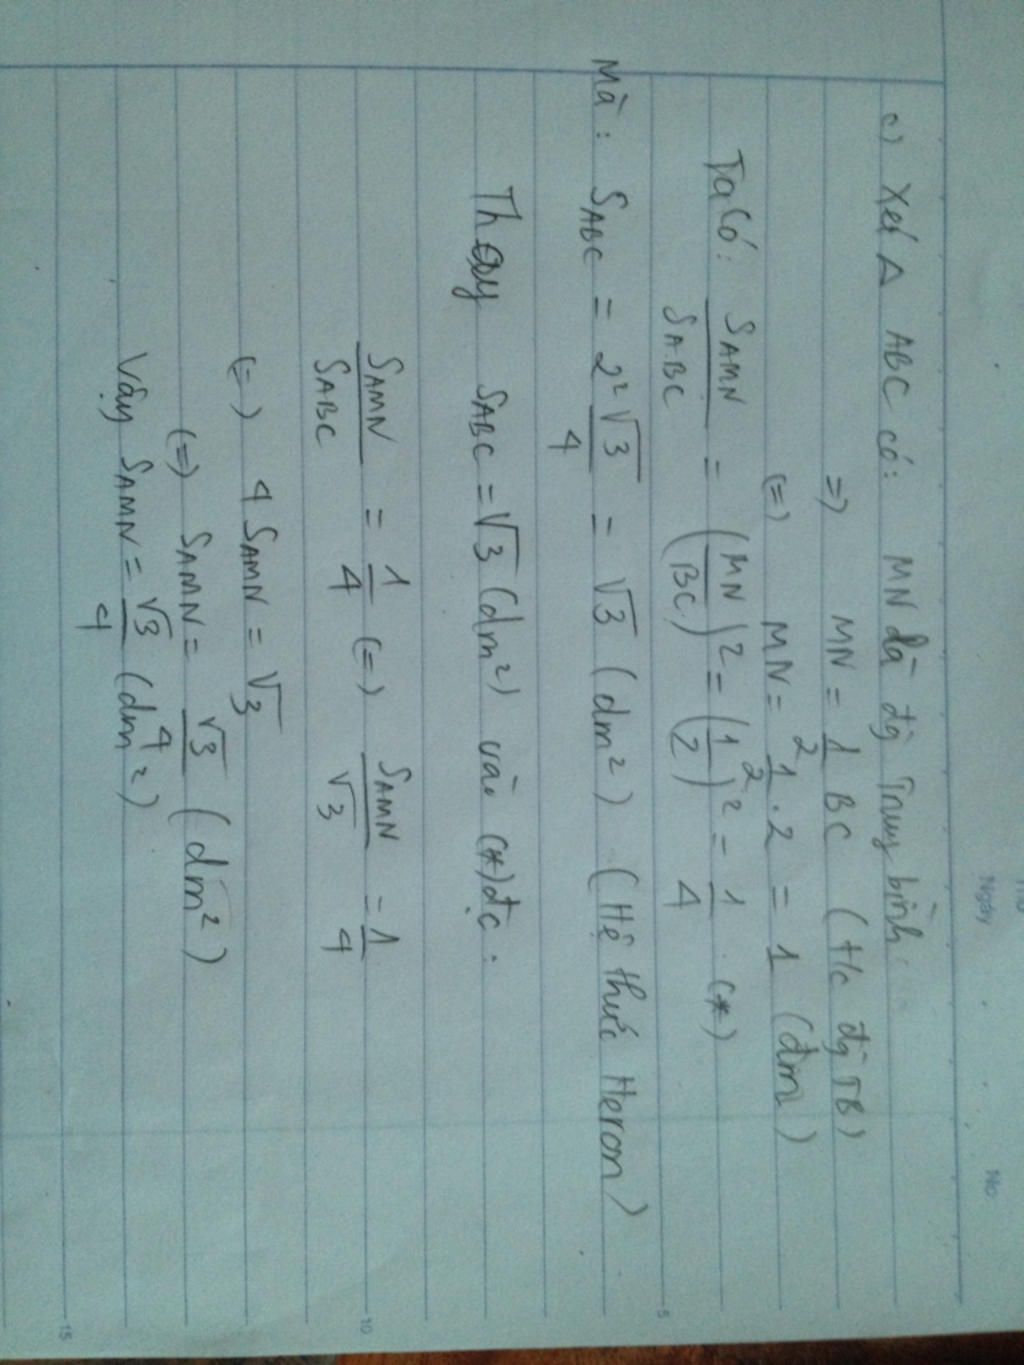 Thứ
Ngày
No.
c) Xét Δ ABC có: MN là đg Trung bình.
=) MN = 1/2 BC (t/c đg TB)
(=) MN = 1/2 . 2 = 1 (dm)
Ta có: SAMN/SABC = (MN/BC)² = (1/2)² = 1/4 (*)
Mà: SABC = 2²√3/4 = √3 (dm²) (Hệ thức Heron)
Thay SABC = √3 (dm²) vào (*) đc:
SAMN/SABC = 1/4 (=) SAMN/√3 = 1/4
(=) 4 SAMN = √3
(=) SAMN = √3/4 (dm²)
Vậy SAMN = √3/4 (dm²)
5
10
15